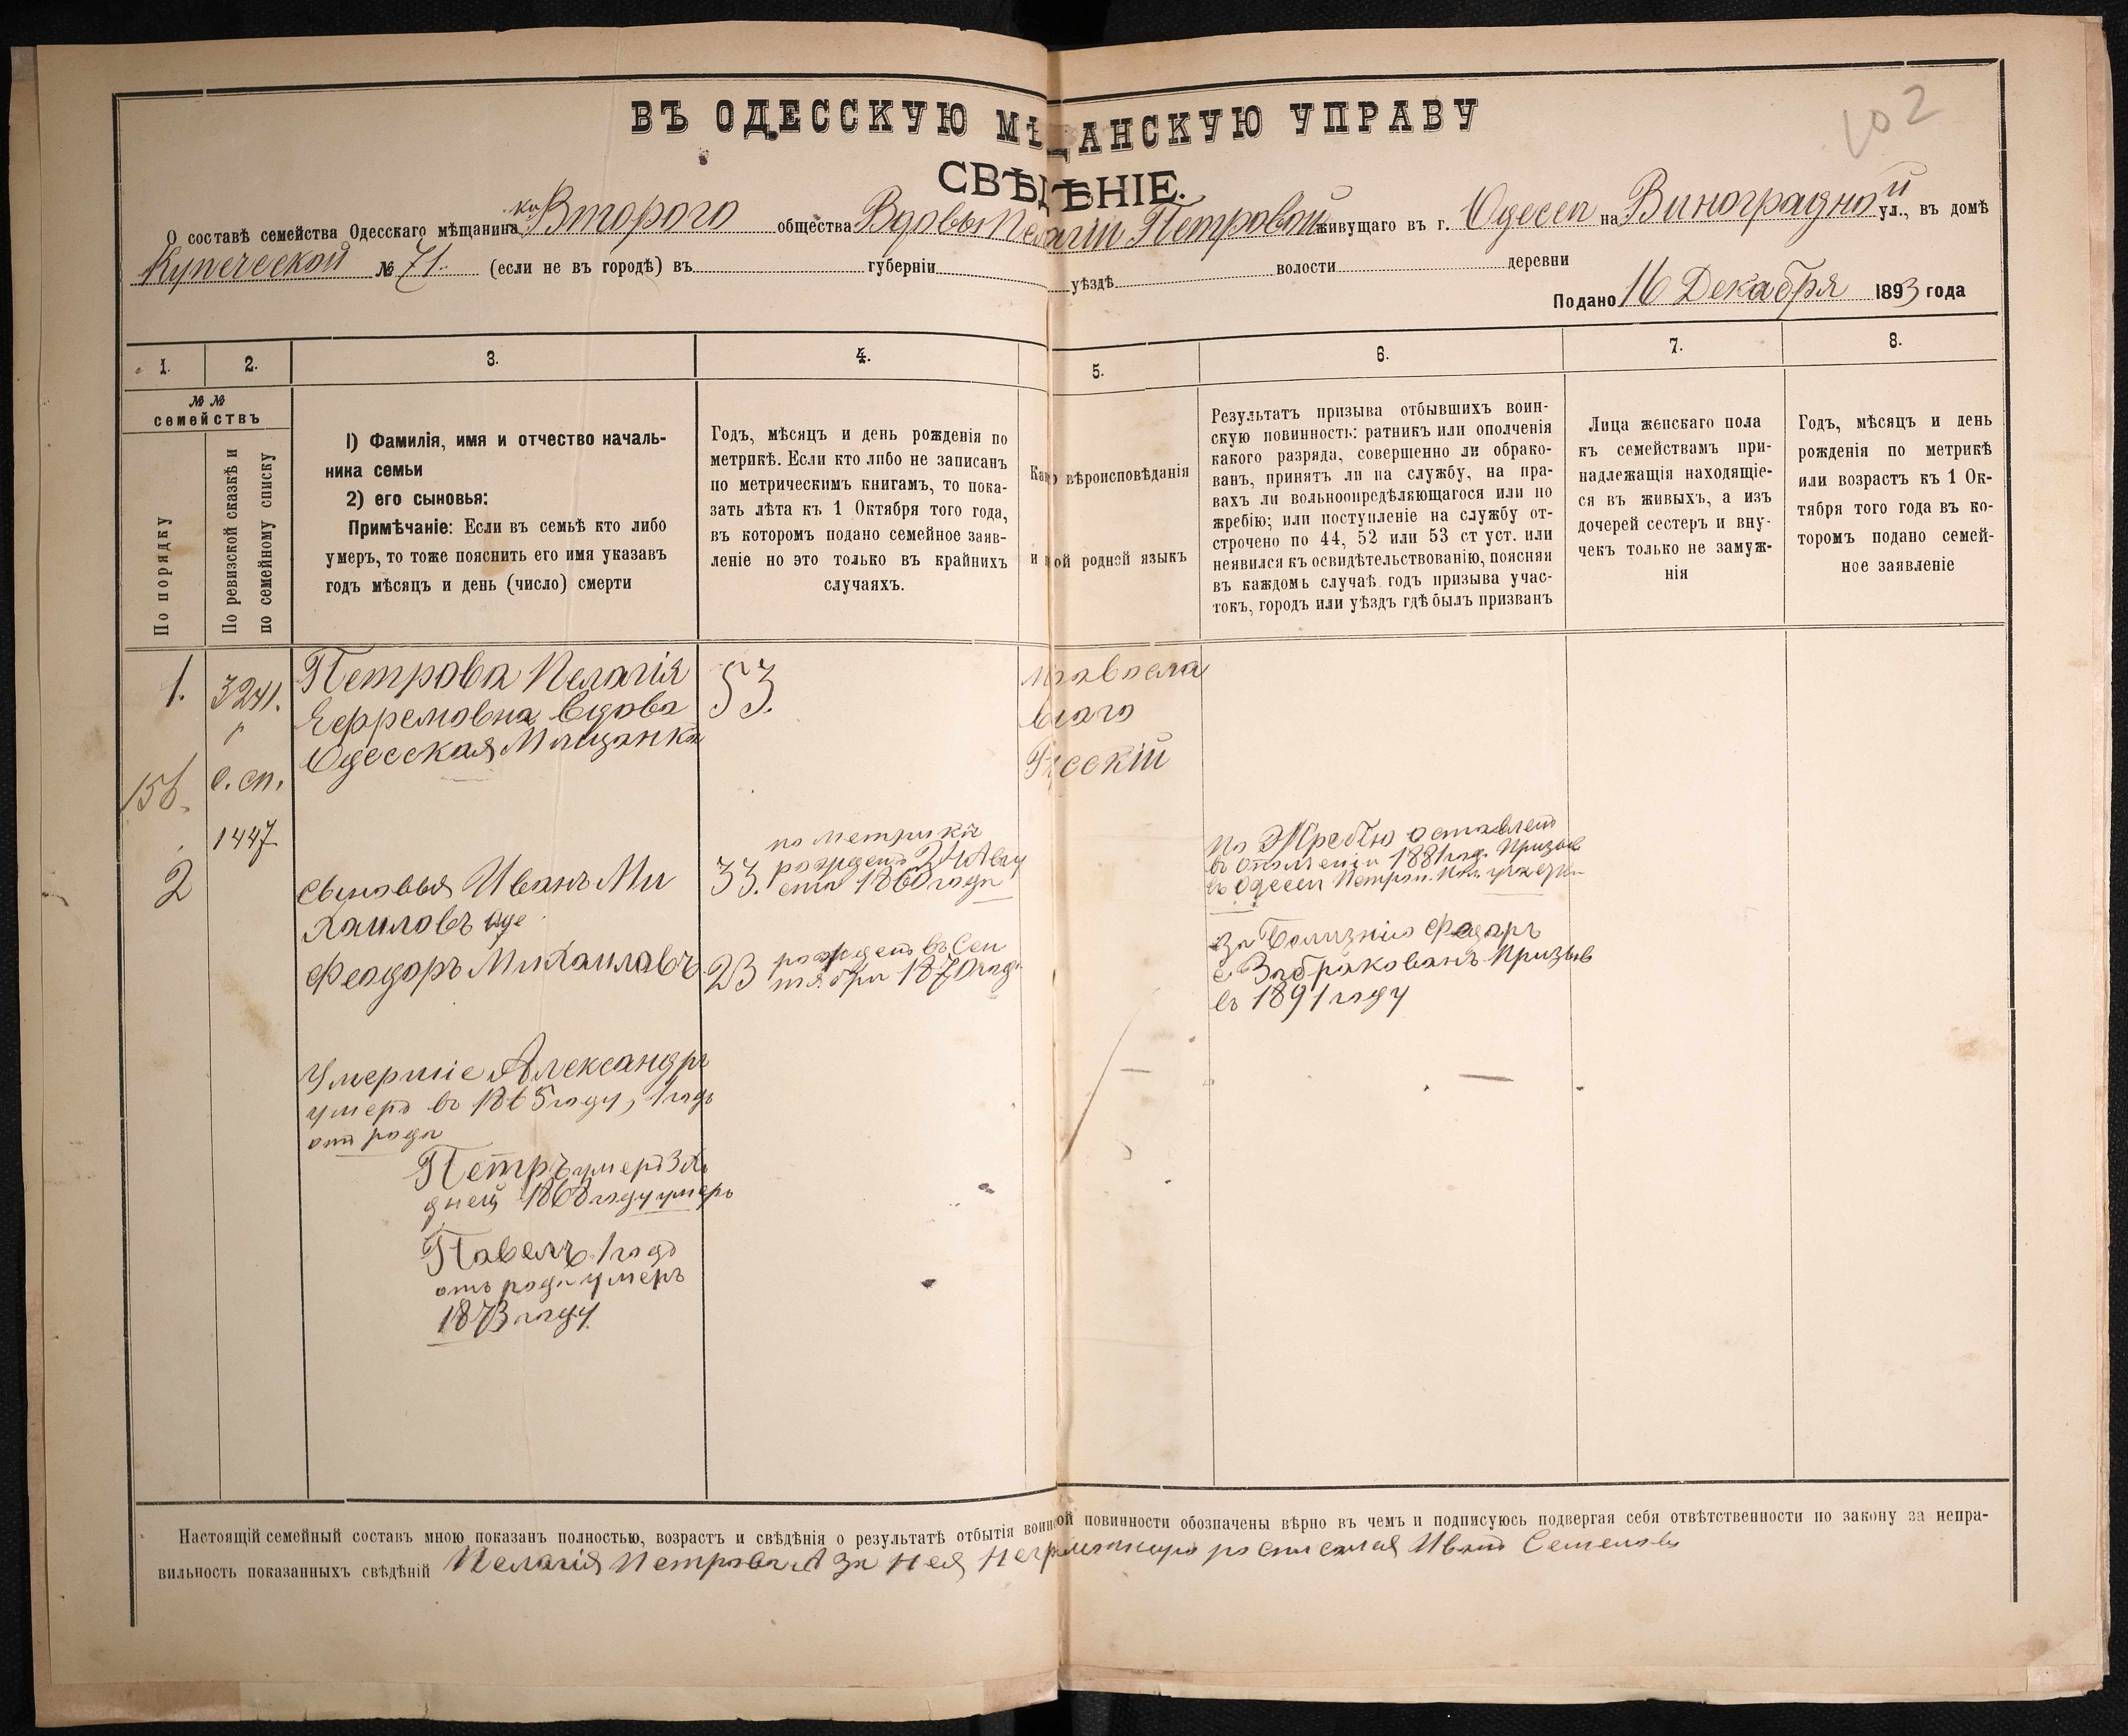 102
ВЪ ОДЕССКУЮ МѢЩАНСКУЮ УПРАВУ
СВѢДѢНІЕ.
О составѣ семейства Одесскаго мѣщанина ки Второго общества Вдовы Пелагіи Петровой живущаго въ г. Одессп на Виноградной ул., въ домѣ
Купеческой № 71. (если не въ городѣ) въ губерніи уѣздѣ волости деревни
Подано 16 Декабря 1893 года
1. 2. 3. 4. 5. 6. 7. 8.
№ №
семействъ
По порядку
По ревизской сказкѣ и
по семейному списку
1) Фамилія, имя и отчество началь-
ника семьи
2) его сыновья:
Примѣчаніе: Если въ семьѣ кто либо
умеръ, то тоже пояснить его имя указавъ
годъ мѣсяцъ и день (число) смерти
Годъ, мѣсяцъ и день рожденія по
метрикѣ. Если кто либо не записанъ
по метрическимъ книгамъ, то пока-
зать лѣта къ 1 Октября того года,
въ которомъ подано семейное заяв-
леніе но это только въ крайнихъ
случаяхъ.
вѣроисповѣданія
и родной языкъ
Результатъ призыва отбывшихъ воин-
скую повинность: ратникъ или ополченія
какого разряда, совершенно ли обрако-
ванъ, принятъ ли на службу, на пра-
вахъ ли вольноопредѣляющагося или по
жребію; или поступленіе на службу от-
строчено по 44, 52 или 53 ст уст. или
неявился къ освидѣтельствованію, поясняя
въ каждомъ случаѣ годъ призыва учас-
токъ, городъ или уѣздъ гдѣ былъ призванъ
Лица женскаго пола
къ семействамъ при-
надлежащія находящіе-
ся въ живыхъ, а изъ
дочерей сестеръ и вну-
чекъ только не замуж-
нія
Годъ, мѣсяцъ и день
рожденія по метрикѣ
или возрастъ къ 1 Ок-
тября того года въ ко-
торомъ подано семей-
ное заявленіе
1. 3241. Петрова Пелагія 53. Правосла
Ефремовна вдова внаго
Одесская Мищанка Русскій
156. с. сп.
1447
2 сыновья Иванъ Ми 33. по метрики
рожденъ 24 Авгу
ста 1860 года
хаиловъ
По Жребію оставленъ
въ ополченіи 1881 год. Призыв
въ Одессп
Феодоръ Михаиловъ 23 рожденъ въ Сен
тября 1870 года
За Болизнію Федоръ
Забракованъ Призыв
въ 1891 году
Умершіе Александръ
умеръ въ 1865 году, 1 годъ
отъ рода
Петръ умеръ
дней 1868 году умеръ
Павелъ 1 годъ
отъ роду умеръ
1873 году
Настоящій семейный составъ мною показанъ полностью, возрастъ и свѣдѣнія о результатѣ отбытія воинской повинности обозначены вѣрно въ чемъ и подписуюсь подвергая себя отвѣтственности по закону за непра-
вильность показанныхъ свѣдѣній Пелагія Петрова А за нея неграмотную росписался Иванъ Семеновъ